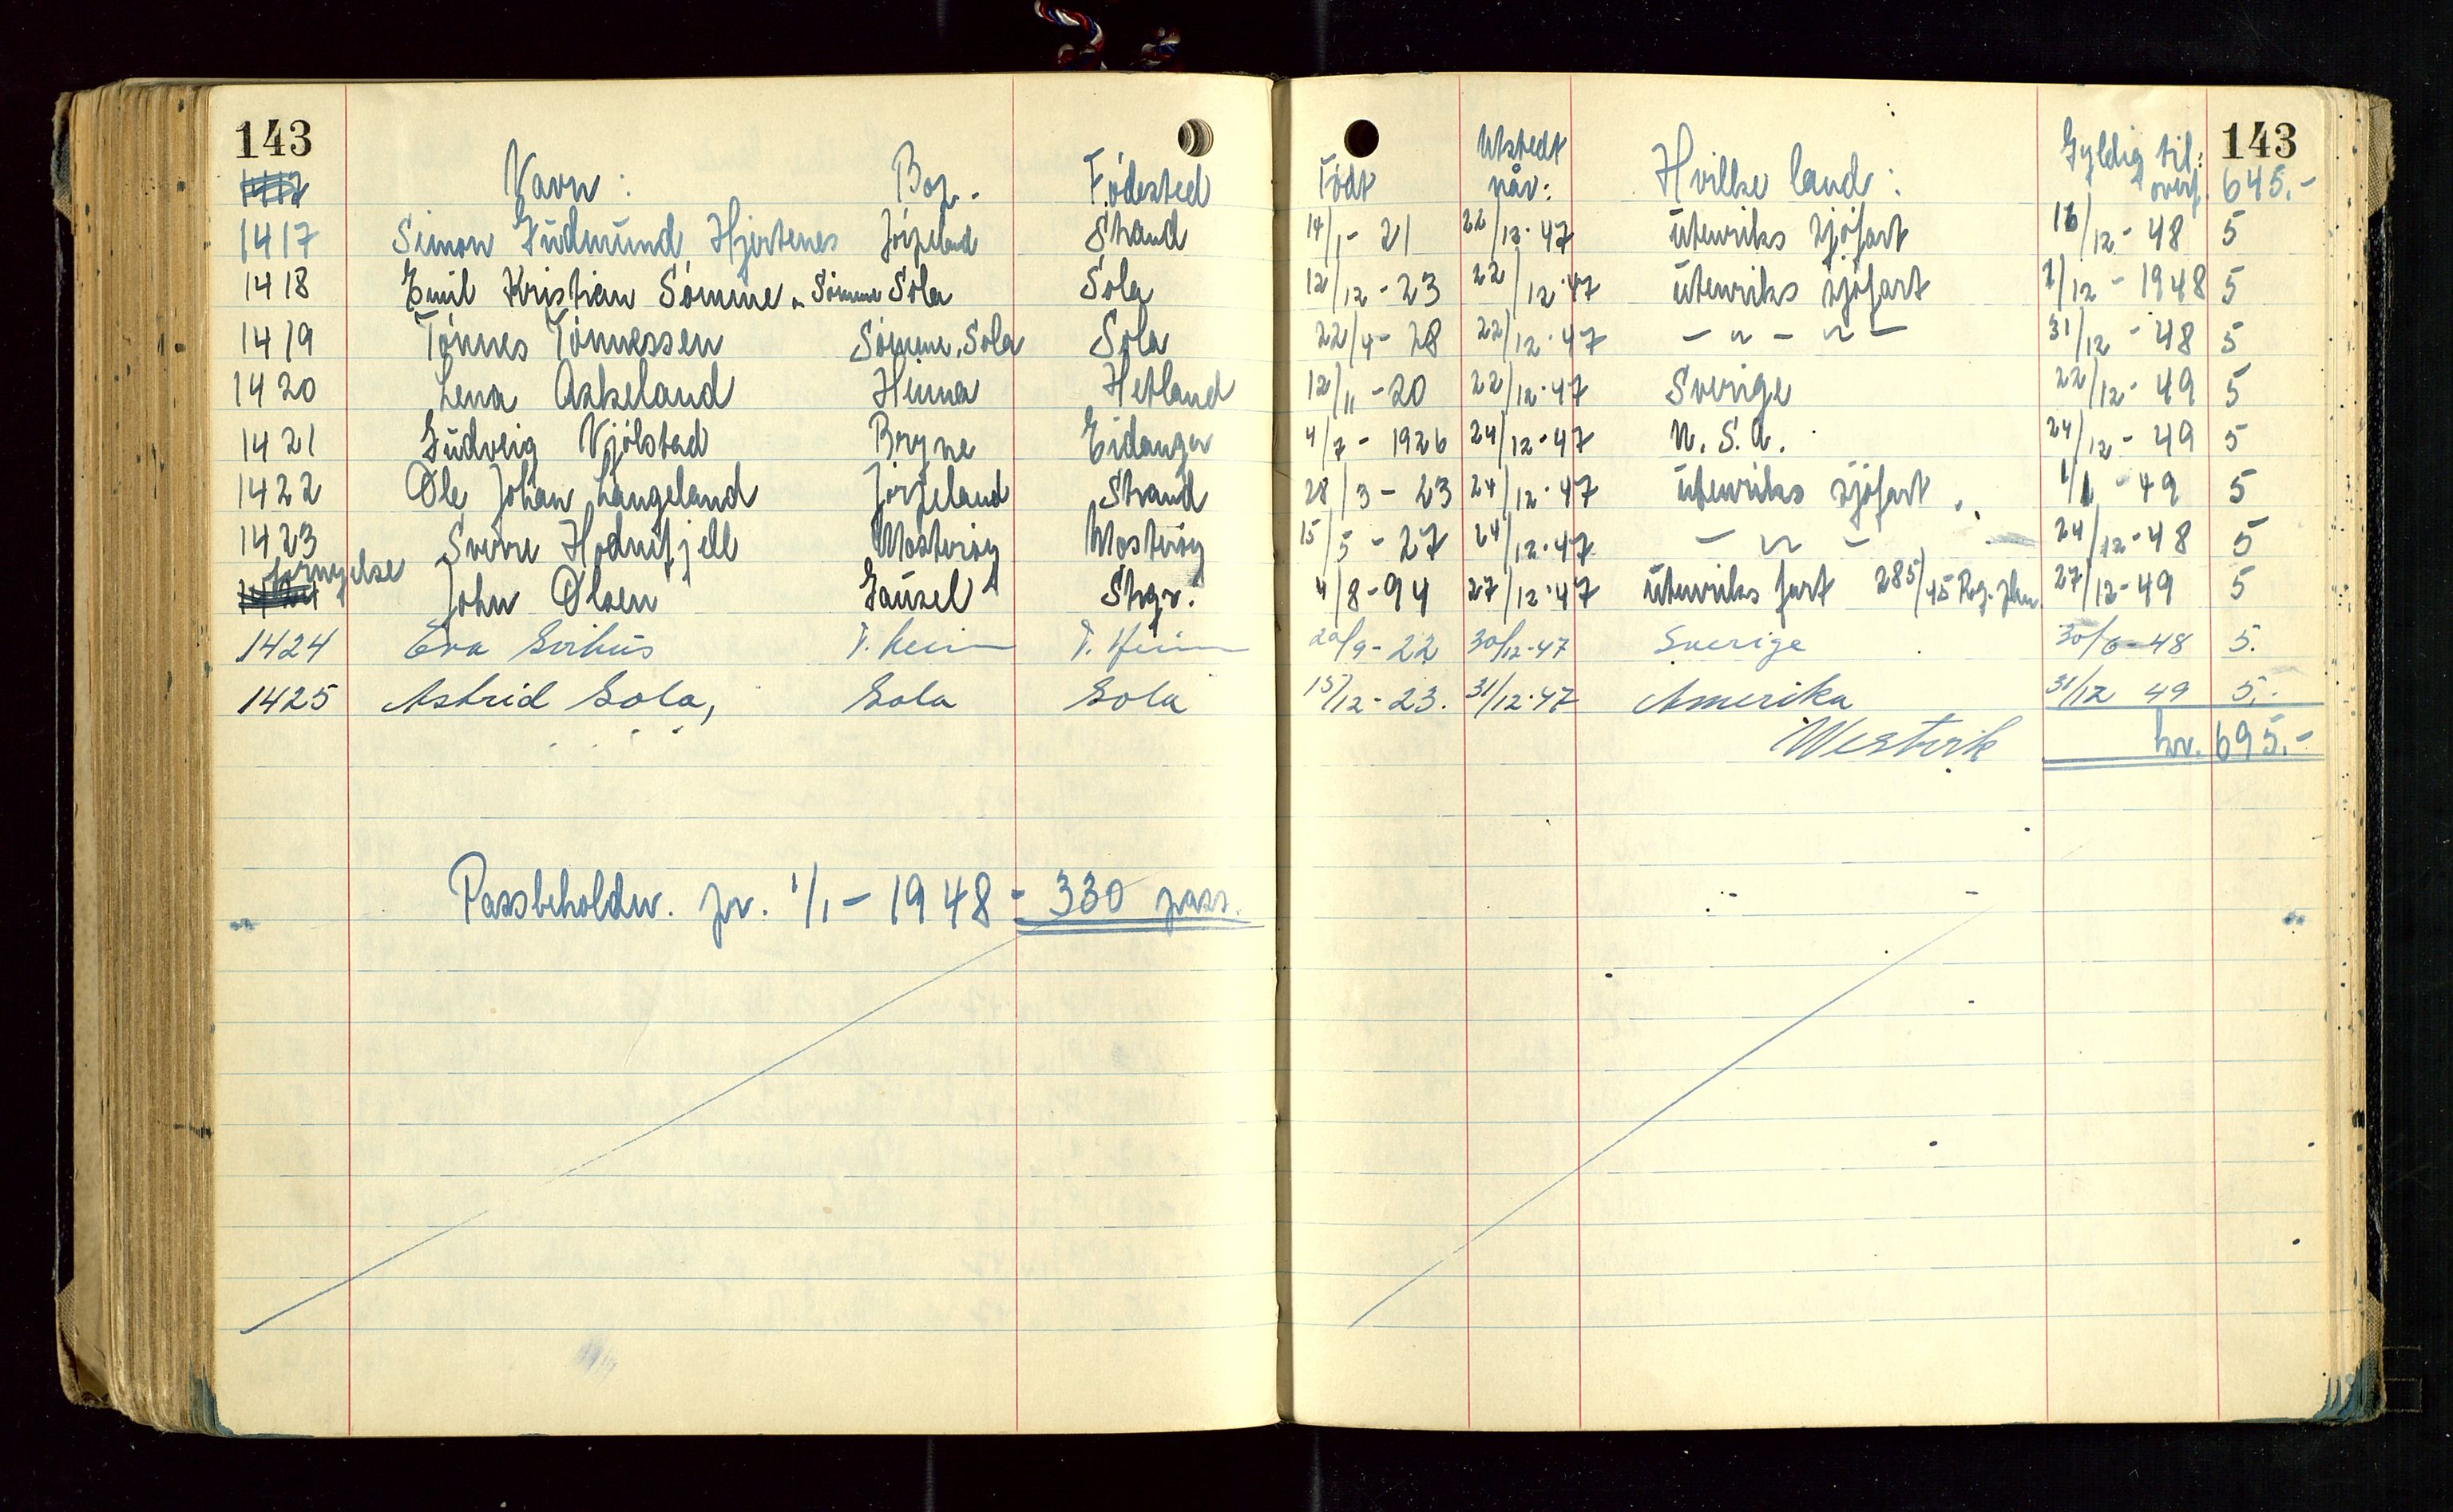 143 143
Navn: Bop. Fødested Født Utstedt når: Hvilke land: Gyldig til: overf. 645.-
1417 Simon Gudmund Hjertenes Jørpeland Strand 14/1- 21 22/12-47 utenriks sjøfart 16/12- 48 5
1418 Emil Kristian Sømme Sømme Sola Sola 12/12-23 22/12-47 utenriks sjøfart 1/12-1948 5
1419 Tønnes Tønnessen Sømme, Sola Sola 22/4-28 22/12-47 - " - " - 31/12-48 5
1420 Lena Askeland Hinna Hetland 12/11-20 22/12-47 Sverige 22/12-49 5
1421 Gudveig Vjølstad Bryne Eidanger 4/7-1926 24/12-47 U.S.A. 24/12-49 5
1422 Ole Johan Langeland Jørpeland Strand 28/3-23 24/12-47 utenriks sjøfart. 1/1-49 5
1423 Sverre Hodnefjell Mosterøy Mosterøy 15/5-27 24/12-47 - " - 24/12-48 5
fornyelse John Olsen Gausel Stvgr. 4/8-94 27/12-47 utenriks fart 285/45 27/12-49 5
1424 Eva Svihus T. heim T. heim 20/9-22 30/12-47 Sverige 30/6-48 5.
1425 Astrid Sola, Sola Sola 15/12-23. 31/12-47 Amerika 31/12 49 5.-
Westvik kr. 695.-
Passbeholdn. pr. 1/1-1948 = 330 pass.